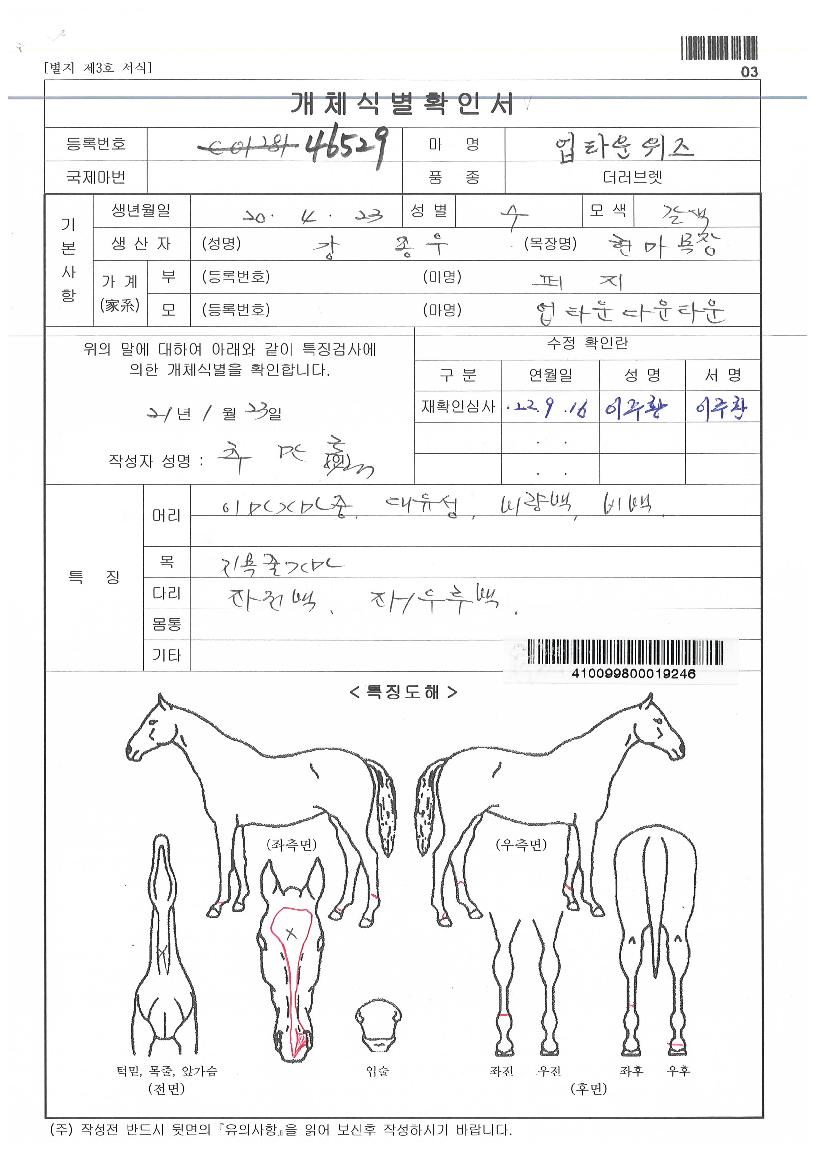 03
[별지 제3호 서식]
개체식별확인서
등록번호 46529 마 명 업타운위즈
국제마번 품 종 더러브렛
기본사항
생년월일 20. 4. 23 성 별 수 모 색 갈색
생 산 자 (성명) 강 종 우 (목장명) 현마목장
가 계 (家系) 부 (등록번호) (마명) 피 지
모 (등록번호) (마명) 업타운다운타운
위의 말에 대하여 아래와 같이 특징검사에
의한 개체식별을 확인합니다.
21년 1월 23일
작성자 성명 : (인)
수정 확인란
구 분 연월일 성 명 서 명
재확인심사 22. 9. 16 이주환 이주환
. .
. .
특 징
머리 대유성, 비량백, 비백.
목
다리 좌전백,
몸통
기타
410099800019246
< 특징도해 >
(좌측면) (우측면)
턱밑, 목줄, 앞가슴 입술 좌전 우전 좌후 우후
(전면) (후면)
(주) 작성전 반드시 뒷면의 『유의사항』을 읽어 보신후 작성하시기 바랍니다.